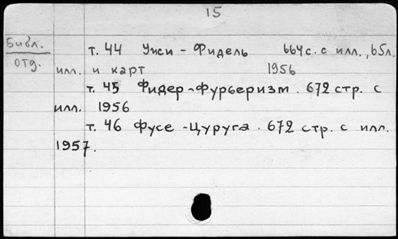 15
Библ.
отд.
т. 44 Ужи - Фидель 664с. с илл., 65л.
илл. и карт 1956
т. 45 Фидер - Фурьеризм. 672 стр. с
илл. 1956
т. 46 Фусе - Цуруга. 672 стр. с илл.
1957.